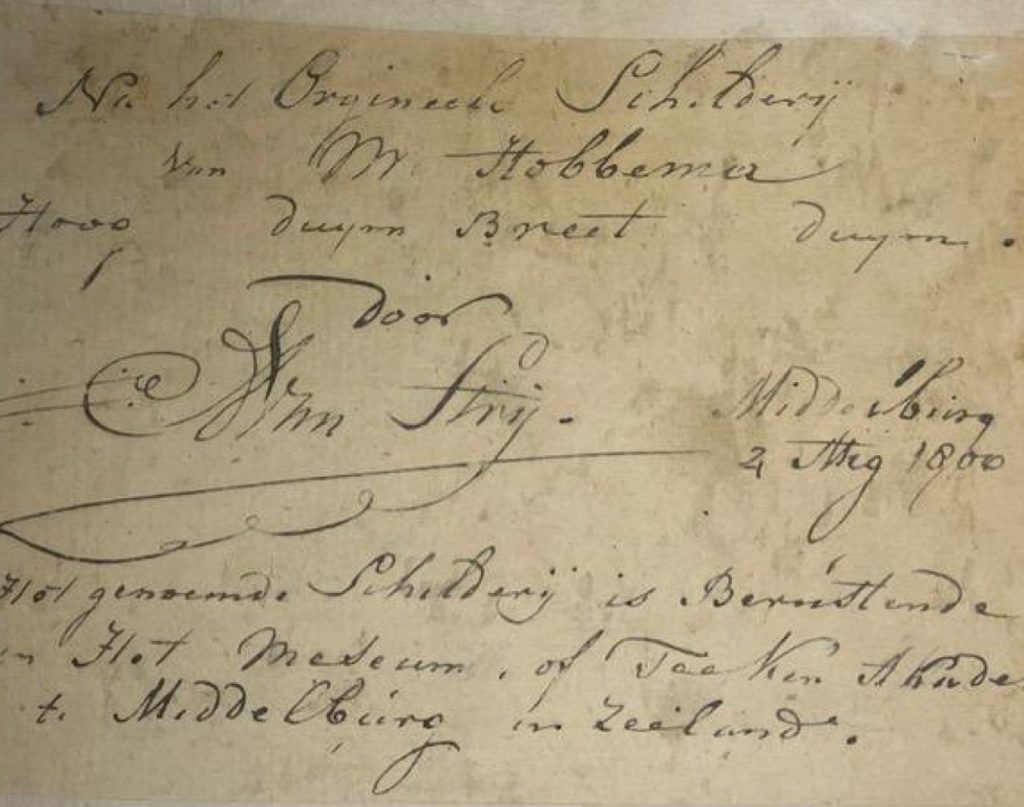 Na het Orgineele Schilderij
van M. Hobbema
Hoog duym Breet duym.
door
Van Strij.
Middelburg
2 Mey 1800
Het genoemde Schilderij is Berustende
in Het Meseum, of Teeken Akade
te Middelburg in Zeeland.